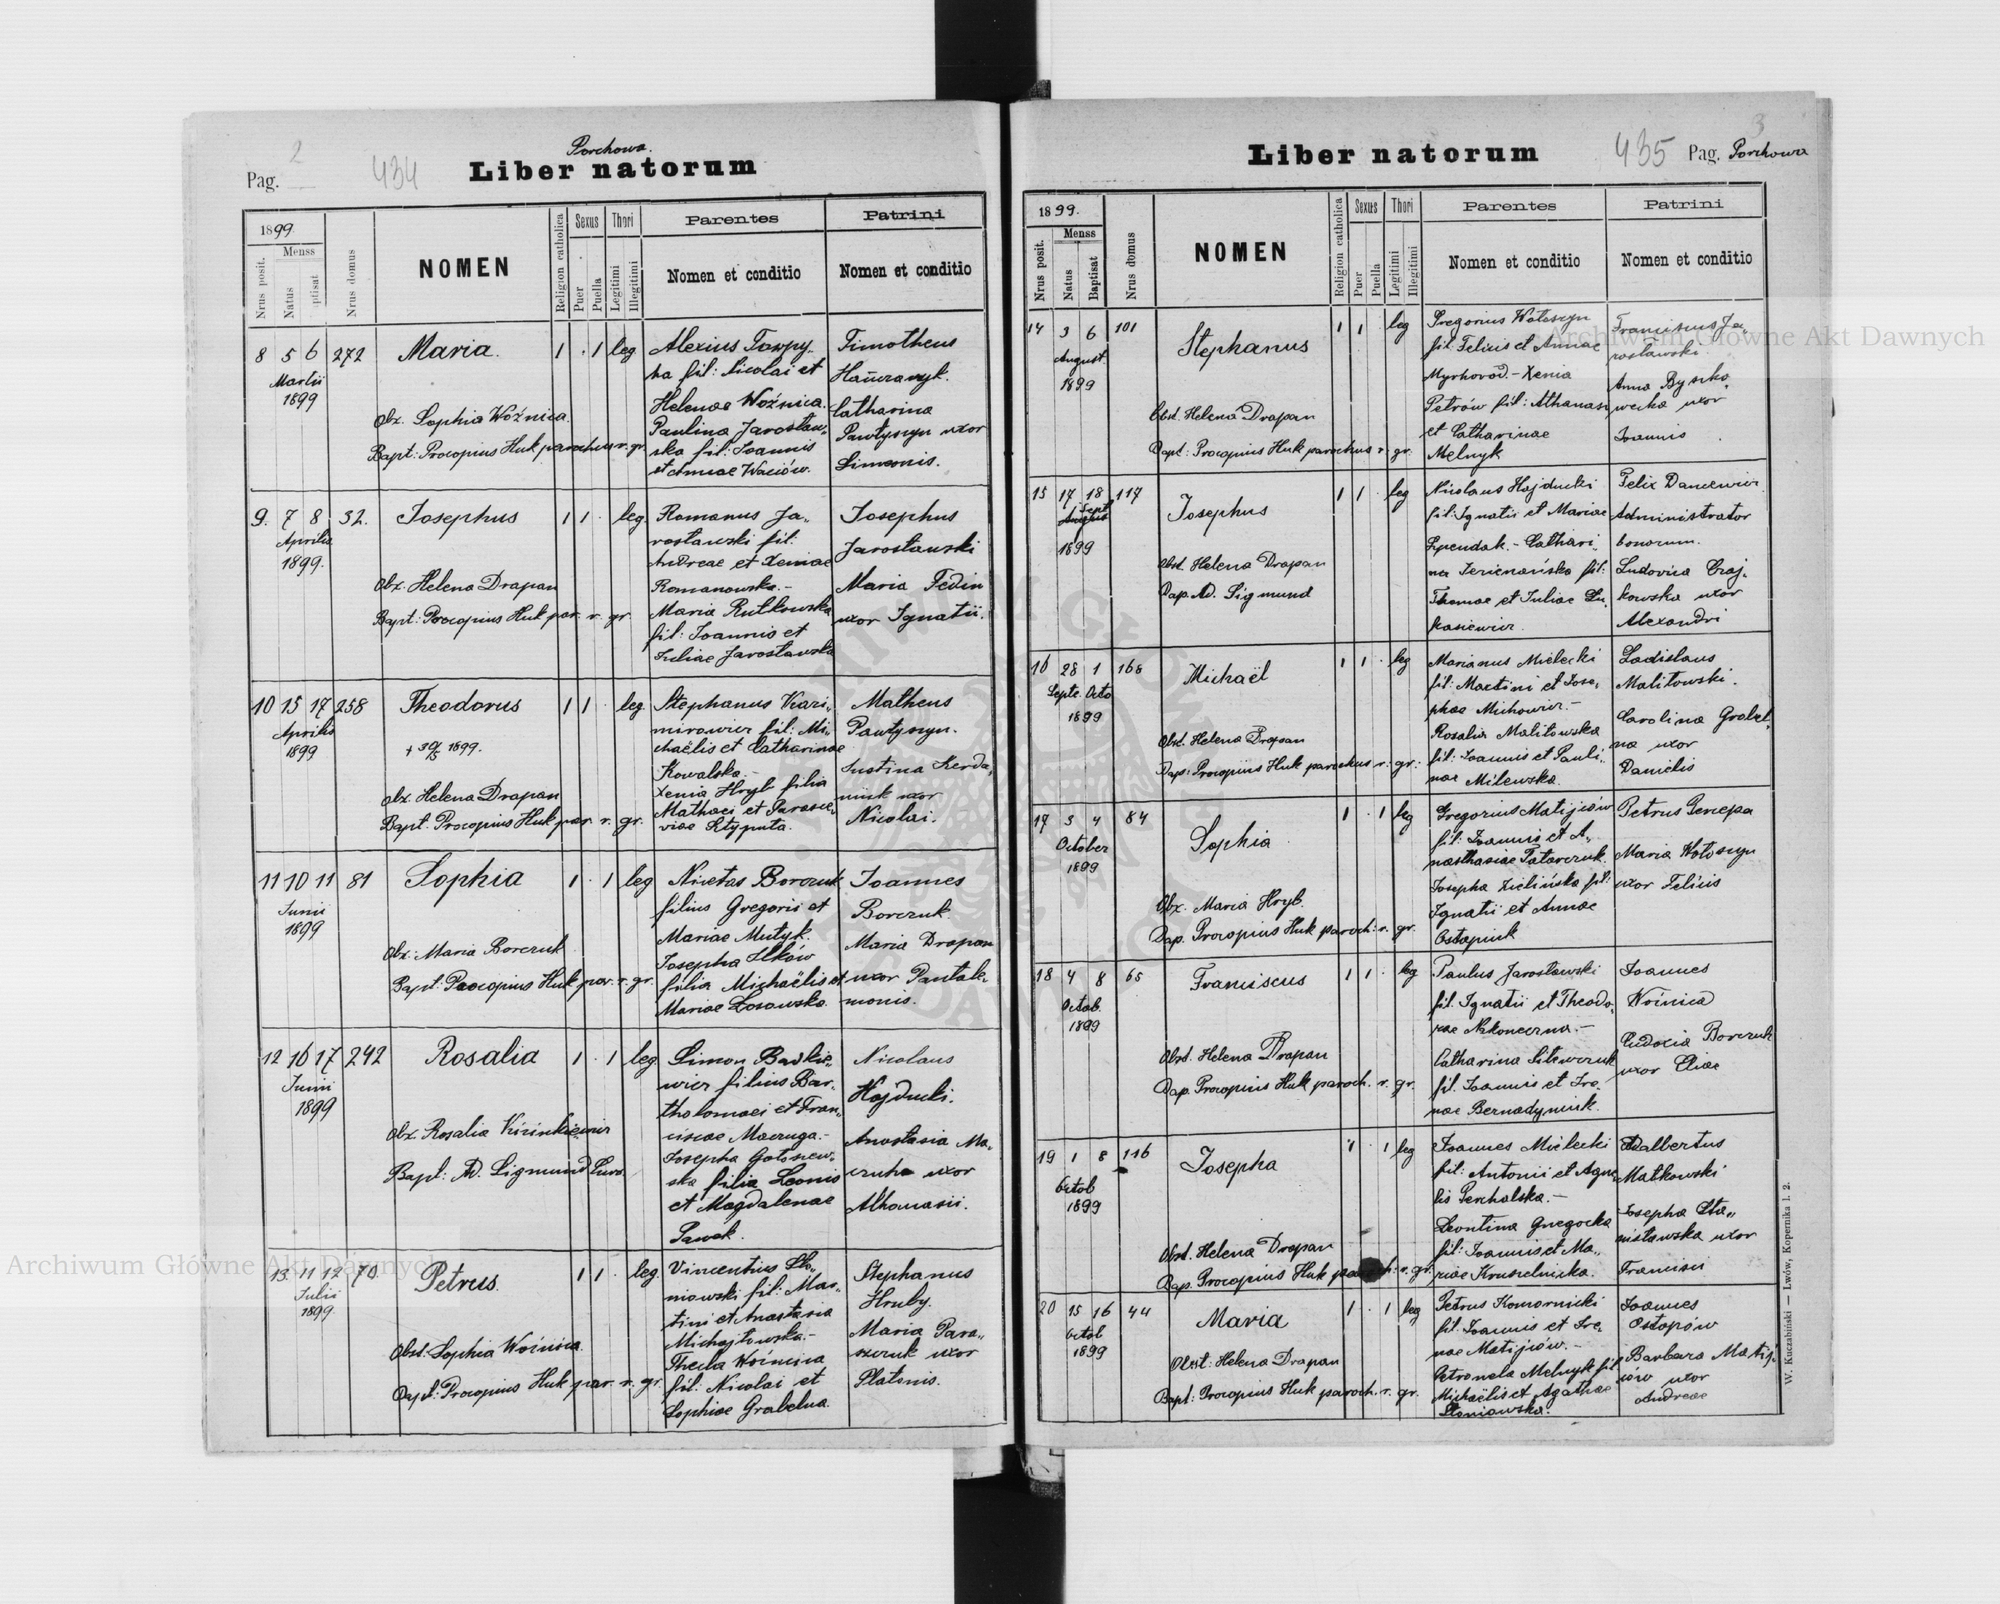 Porchowa.
Pag. 2
434
Liber natorum
1899
Menss
Nrus posit.
Natus
ptisat
Nrus domus
NOMEN
Religion catholica
Sexus
Puer
Puella
Thori
Legitimi
Illegitimi
Parentes
Nomen et conditio
Patrini
Nomen et conditio
8 5 6 272 Maria. 1 . 1 leg
Martii
1899
Obs. Sophia Woźnica.
Bapt: Procopius Huk parochus r. gr.
Alexius
ka fil: Nicolai et
Helenae Woźnica.
Paulina Jarosław„
ska fil: Joannis
et Annae
Timotheus
Catharina
Pawłyszyn uxor
Simeonis.
9. 7 8 32. Josephus 1 1 . leg
Aprilis
1899.
Obs. Helena Drapan
Bapt: Procopius Huk par. r. gr.
Romanus Ja„
rosławski fil:
Andreae et Xeniae
Romanowska.-
Maria Rutkowska
fil: Joannis et
Juliae Jarosławska
Josephus
Jarosławski
Maria Fedin
uxor Ignatii.
10 15 17 258 Theodorus 1 1 . leg
Aprilis
1899
1899.
Obs. Helena Drapan
Bapt. Procopius Huk par. r. gr.
Stephanus Kazi„
mirowicz fil: Mi„
chaëlis et Catharinae
Kowalska.-
Xenia Hryb filia
Mathaei et Parasce„
viae
Matheus
Pawłyszyn.
Justina
uxor
Nicolai.
11 10 11 81 Sophia 1 . 1 leg
Junii
1899
Obs: Maria Borczuk
Bapt: Procopius Huk par. r. gr.
Nicetas Borczuk
filius Gregorii et
Mariae
Josepha Ilków
filia Michaëlis et
Mariae
Joannes
Borczuk.
Maria Drapan
uxor Pantale„
monis.
12 16 17 242 Rosalia 1 . 1 leg.
Junii
1899
Obs: Rosalia
Bapt: Ad. Sigmund
Simon
wicz filius Bar„
tholomaei et Fran„
ciscae
Josepha
ska filia Leonis
et Magdalenae
Nicolaus
Hajducki.
Anastasia Ma„
uxor
Athanasii.
13. 11 12 70. Petrus. 1 1 . leg.
Julii
1899.
Obst: Sophia Woźnica
Bapt: Procopius Huk par. r. gr.
Vincentius Sło„
niowski fil: Mar„
tini et Anastasia
Michajłowska.-
Thecla Woźnica
fil: Nicolai et
Sophiae Grabelna.
Stephanus
Hruby.
Maria Para„
szczuk uxor
Platonis.
Archiwum Główne Akt Dawnych
Archiwum Główne Akt Dawnych
Liber natorum
435
Pag. 3
Porchowa
1899.
Menss
Nrus posit.
Natus
Baptisat
Nrus domus
NOMEN
Religion catholica
Sexus
Puer
Puella
Thori
Legitimi
Illegitimi
Parentes
Nomen et conditio
Patrini
Nomen et conditio
14 3 6 101 Stephanus 1 1 . leg
August.
1899
Obst. Helena Drapan
Bapt: Procopius Huk parochus r. gr.
Gregorius Wołoszyn
fil. Felicis et Annae
Myrhorod.- Xenia
Petrów fil: Athanasii
et Catharinae
Melnyk
Franciscus Ja„
rosławski.
Anna
uxor
Joannis
Archiwum Główne Akt Dawnych
15 17 18 117 Josephus 1 1 . leg
Sept
August
1899
Obst. Helena Drapan
Bap. Ad. Sigmund
Nicolaus Hajducki
fil: Ignatii et Mariae
Cathari„
na
Thomae et Juliae
Felix
Administrator
bonorum.
Ludovica Czaj„
kowska uxor
Alexandri
16 28 1 168 Michaël 1 1 . leg
Septe. Octo
1899
Obst. Helena Drapan
Bap: Procopius Huk parochus r. gr:
Marianus Mielecki
fil: Martini et Jose„
phae Michowicz.-
Rosalia Malitowska
fil: Joannis et Pauli„
nae Milewska.
Ladislaus
Malitowski.
Carolina Grabel„
na uxor
Danielis
17 3 4 84 Sophia 1 . 1 leg
October
1899
Obs. Maria Hryb.
Bap. Procopius Huk paroch: r. gr.
Gregorius Matijców
fil: Joannis et A„
nasthasiae Tatarczuk.
Josepha Zielińska fil:
Ignatii et Annae
Ostapiuk
Petrus
Maria Wołoszyn
uxor Felicis
18 4 8 65 Franciscus 1 1 . leg
Octob.
1899
Obst. Helena Drapan
Bap. Procopius Huk paroch. r. gr.
Paulus Jarosławski
fil. Ignatii et Theodo„
rae
Catharina
fil. Joannis et Ire„
nae
Joannes
Woźnica
Eudocia Borczuk
uxor Eliae
19 1 8 116 Josepha 1 . 1 leg
Octob
1899
Obst. Helena Drapan
Bap. Procopius Huk r. gr.
Joannes Mielecki
fil: Antonii et Agne„
tis
Leontina
fil: Joannis et Ma„
riae Kruszelnicka.
Adalbertus
Matkowski
Josepha Sta„
nisławska uxor
Francisci
20 15 16 44 Maria 1 . 1 leg
Octob
1899
Obst: Helena Drapan
Bapt: Procopius Huk paroch. r. gr.
Petrus Komarnicki
fil. Joannis et Ire„
nae Matijców.-
Petronela Melnyk fil
Michaëlis et Agathae
Słoniowska.
Joannes
Ostapów
Barbara Matij„
ców uxor
Andreae
W. Kuczabiński — Lwów, Kopernika l. 2.